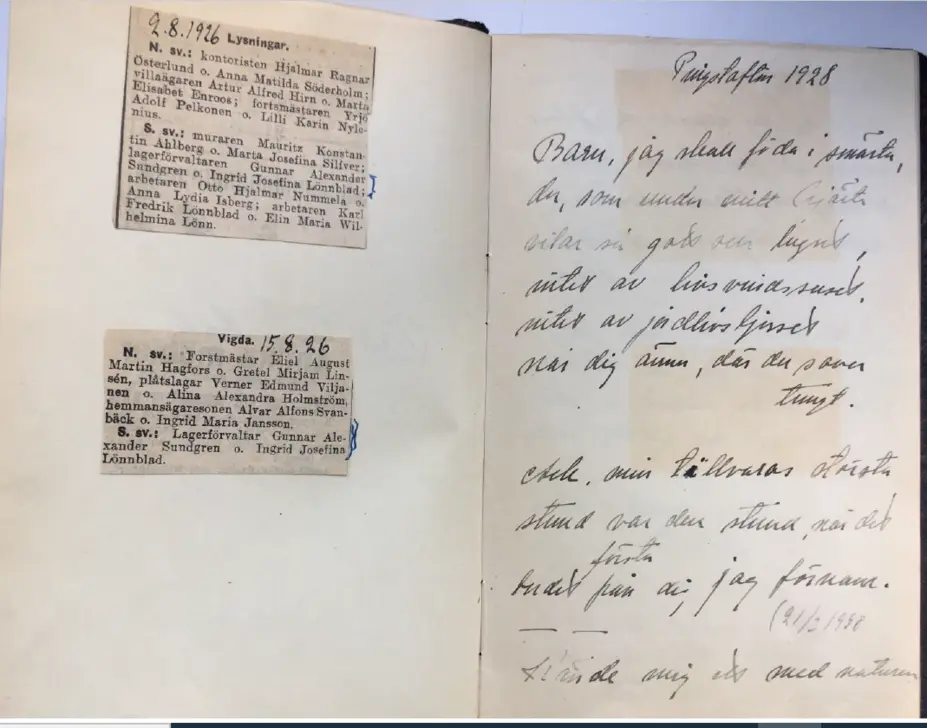 2.8.1926 Lysningar.
N. sv.: kontoristen Hjalmar Ragnar
Österlund o. Anna Matilda Söderholm;
villaägaren Artur Alfred Hirn o. Marta
Elisabet Enroos; forstmästaren Yrjö
Adolf Pelkonen o. Lilli Karin Nyle-
nius.
S. sv.: muraren Mauritz Konstan-
tin Ahlberg o. Marta Josefina Silfver;
lagerförvaltaren Gunnar Alexander
Sundgren o. Ingrid Josefina Lönnblad;
arbetaren Otto Hjalmar Nummela o.
Anna Lydia Isberg; arbetaren Karl
Fredrik Lönnblad o. Elin Maria Wil-
helmina Lönn.
Vigda. 15.8.26
N. sv.: Forstmästar Eliel August
Martin Hagfors o. Gretel Mirjam Lin-
sén, plåtslagar Verner Edmund Vilja-
nen o. Alina Alexandra Holmström,
hemmansägaresonen Alvar Alfons Svan-
bäck o. Ingrid Maria Jansson.
S. sv.: Lagerförvaltar Gunnar Ale-
xander Sundgren o. Ingrid Josefina
Lönnblad.
Pingstafton 1928
Barn, jag skall föda i smärta,
du, som under mitt hjärta
vilar så gott och lugnt,
intet av livsvindssuset,
intet av jordlivsljuset
når dig ännu, där du sover
tungt.
min tillvaros största
stund var den stund, när det
första
budet från dig jag förnam.
(21/2 1928
mig ett med naturen